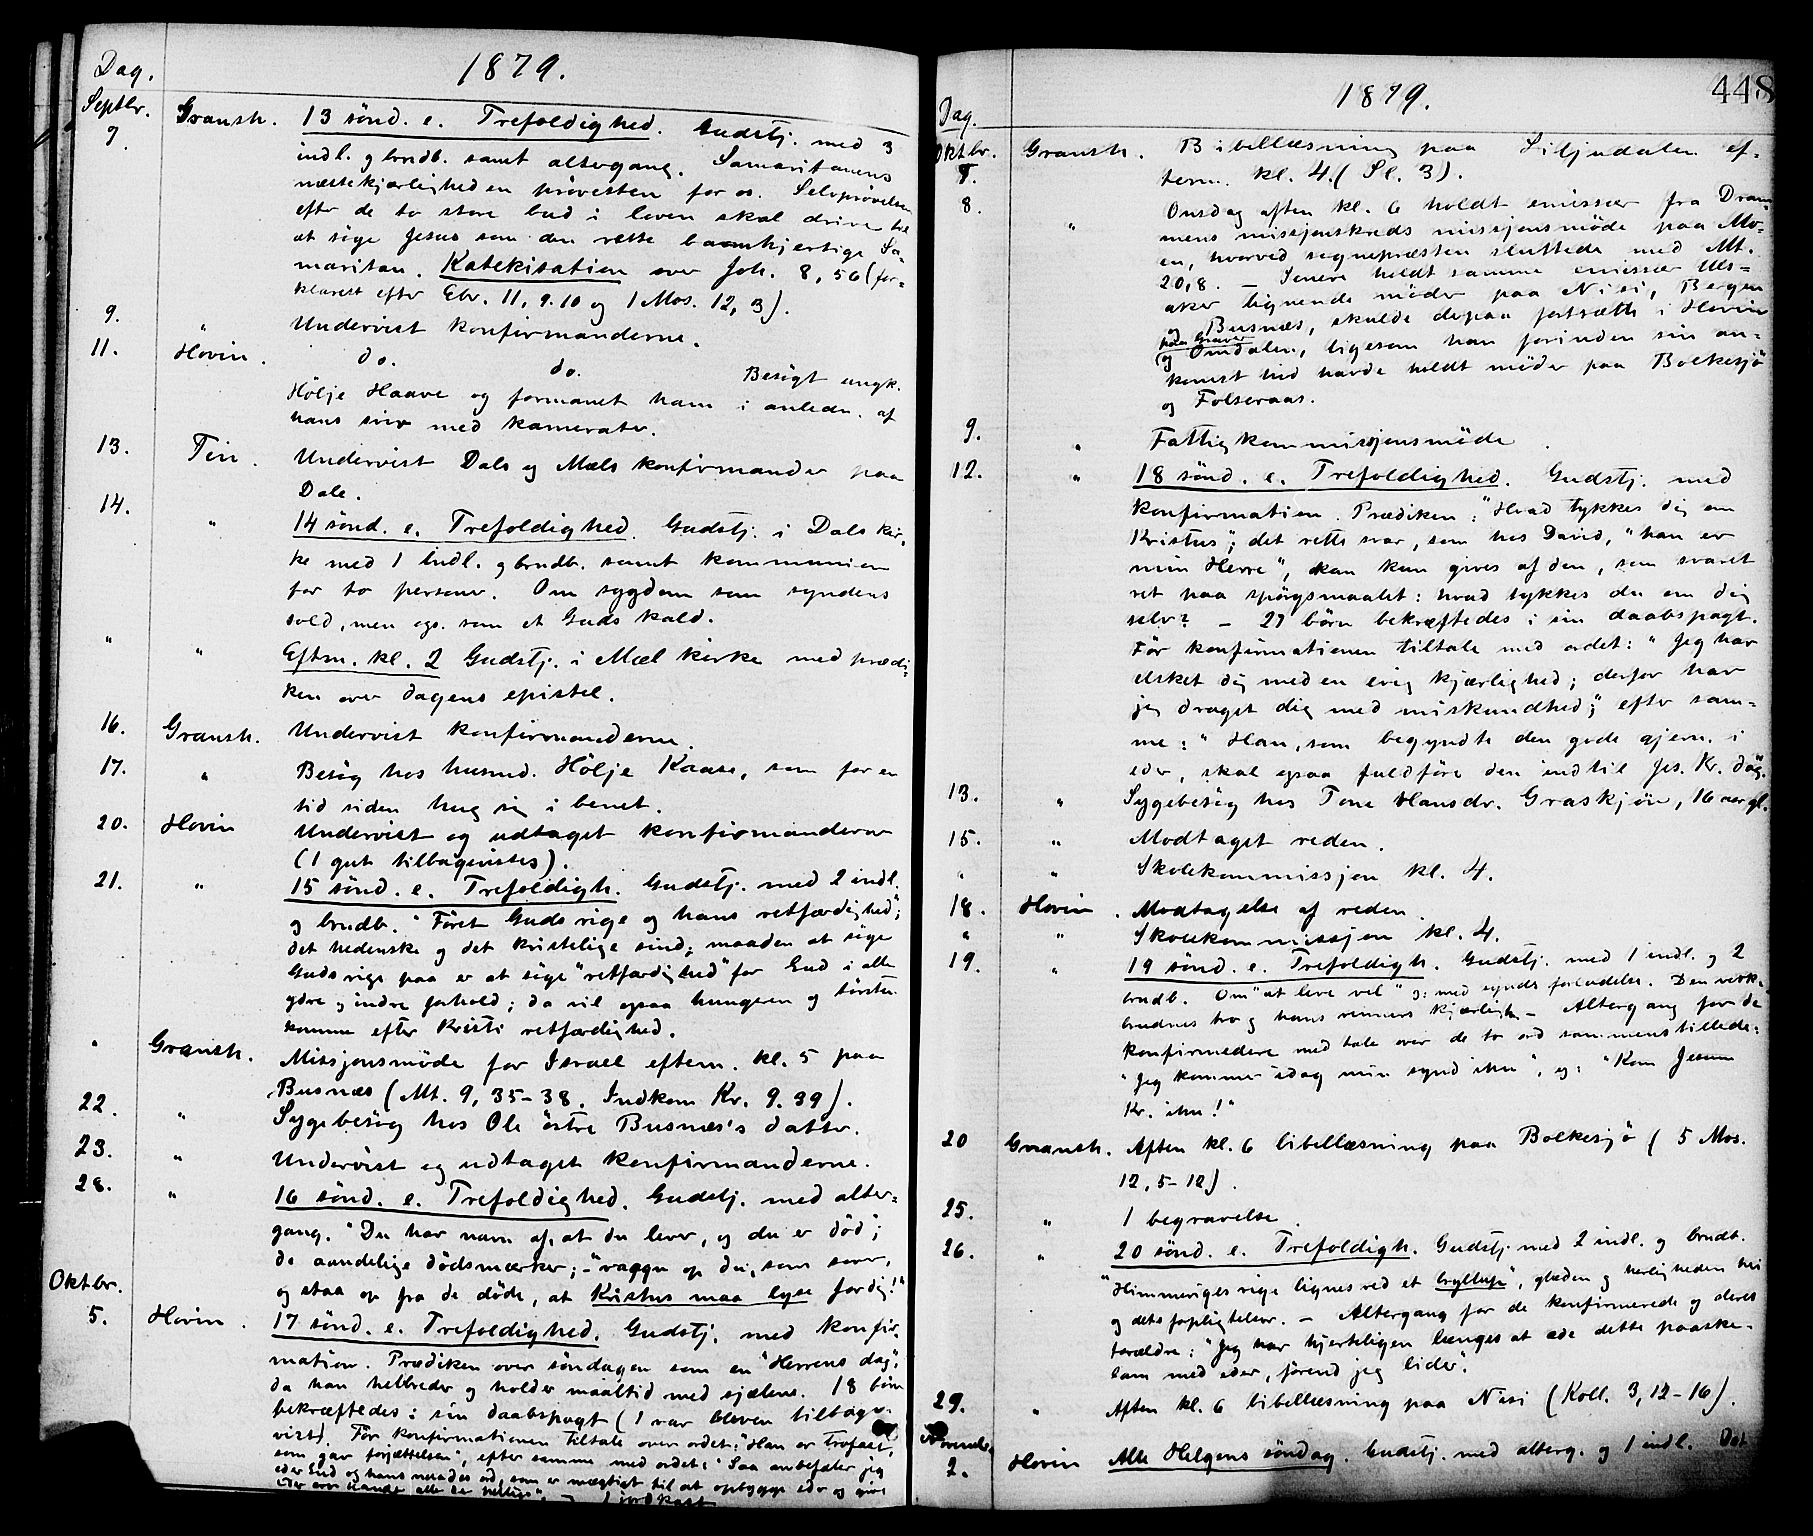 1879.
Dag.
Septbr.
7. Gransh. 13 sønd. e. Trefoldighed. Gudstj. med 3
indl. g brudb. samt altergang. Samaritanens
næstekjærligheden prøvesten for os. Selvprøvelsen
efter de to store bud i loven skal drive til
at søge Jesus som den rette barmhjertige Sa-
maritan. Katekisation over Joh. 8, 56 (for-
klaret efter Ebr. 11, 9.10 og 1 Mos. 12, 3).
9. " Undervist konfirmanderne.
11. Hovin. do. do. Besøgt ungk.
Hölje Haave og formanet ham i anledn. af
hans svir med kamerater.
13. Tin. Undervist Dals og Mæls konfirmander paa
Dale.
14. " 14 sønd. e. Trefoldighed. Gudstj. i Dals kir-
ke med 1 indl. g brudb. samt kommunion
for to personer. Om sygdom som syndens
sold, men ogs. som et Guds kald.
" " Eftm. kl. 2 Gudstj. i Mæl kirke med prædi-
ken over dagens epistel.
16. Gransh. Undervist konfirmanderne.
17. " Besøg hos husmd. Hölje Kaase, som for en
tid siden hug sig i benet.
20. Hovin Undervist og udtaget konfirmanderne
(1 gut tilbagevistes).
21. " 15 sønd. e. Trefoldigh. Gudstj. med 2 indl.
og brudb. "Først Guds rige og hans retfærdighed";
det hedenske og det kristelige sind; maaden at søge
Guds rige paa er at søge "retfærdighed" for Gud i alle
ydre og indre forhold; da vil ogsaa hungeren og tørsten
komme efter Kristi retfærdighed.
" Gransh. Missjonsmøde for Israel eftem. kl. 5 paa
Busnæs (Mt. 9, 35-38. Indkom Kr. 9.39).
22. " Sygebesøg hos Ole östre Busnæs's datter.
23. " Undervist og udtaget konfirmanderne.
28. " 16 sønd. e. Trefoldighed. Gudstj. med alter-
gang. "Du har navn af, at du lever, og du er død";
de aandelige dødsmærker; - "vaagn op du, som sover,
og staa op fra de døde, at Kristus maa lyse for dig!"
Oktbr.
5. Hovin. 17 sønd. e. Trefoldighed. Gudstj. med konfir-
mation. Prædiken over søndagen som en "Herrens dag",
da han helbreder og holder maaltid med sjælene. 18 børn
bekræftedes i sin daabspagt (1 var bleven tilbage-
vist). Før konfirmationen tiltale over ordet: "Han er trofast,
som gav forjættelsen", efter samme med ordet: "Saa anbefaler jeg
eder Gud og hans naades ord, som er mægtigt til at opbygge eder og give
1879.
448
Dag.
Oktbr. Gransh. Bibellæsning paa Liljudalen ef-
term. kl. 4. (Sl. 3).
8. " Onsdag aften kl. 6 holdt emissær fra Dram-
mens missjonskreds missjonsmøde paa Mo-
en, hvorved sognepræsten sluttede med Mt.
20,8. - Senere holdt samme emissær Uls-
aker lignende møder paa Nisi, Bergen
og Busnæs, skulde derpaa fortsætte i Hovin
paa Graver
og Omdalen, ligesom han forinden sin an-
komst hid havde holdt møder paa Bolkesjø
og Folseraas.
9. " Fattigkommissjonsmøde.
12. " 18 sønd. e. Trefoldighed. Gudstj. med
konfirmation. Prædiken: "Hvad tykkes dig om
Kristus"; det rette svar, som hos David, "han er
min Herre", kan kun gives af den, som svaret
ret paa spørgsmaalet: hvad tykkes du om dig
selv? - 27 børn bekræftedes i sin daabspagt.
Før konfirmationen tiltale med ordet: "Jeg har
elsket dig med en evig kjærlighed; derfor har
jeg draget dig med miskundhed"; efter sam-
me: "Han, som begyndte den gode gjern. i
eder, skal ogsaa fuldføre den indtil Jes. Kr. dag."
13. " Sygebesøg hos Tone Hansdr. Graskjøn, 16 aar gl.
15. " Modtaget reden.
" " Skolekommissjon kl. 4.
18. Hovin. Modtagelse af reden.
" " Skolekommissjon kl. 4.
19. " 19 sønd. e. Trefoldigh. Gudstj. med 1 indl. og 2
brudb. Om "at leve vel" ɔ: med synds forladelse. Den verk-
brudnes tro og hans venners kjærligh. - Altergang for de
konfirmedere med tale over de to ord sammenstillede:
"Jeg kommer idag min synd ihu", og: "Kom Jesum
Kr. ihu!"
20 Gransh. Aften kl. 6 bibellæsning paa Bolkesjø (5 Mos.
12, 5-12).
25. " 1 begravelse.
26. " 20 sønd. e. Trefoldigh. Gudstj. med 2 indl. og brudb.
"Himmeriges rige lignes ved et bryllup", glæden og herligheden hei
og dets forpligtelser. - Altergang for de konfirmerede og deres
forældre: "Jeg har hjerteligen længes at æde dette paaske-
lam med eder, førend jeg lider".
29. " Aften kl. 6 bibellæsning paa Nisi (Koll. 3, 12-16).
Novembr.
2. Hovin Alle Helgens søndag. Gudstj. med alterg. og 1 indl. Det